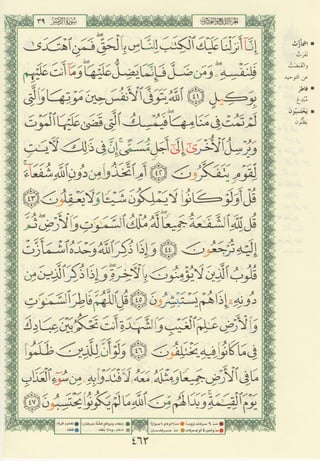 ٣٩
سُورَةُ الزُّمَرِ
الجزء الرابع والعشرون
إِنَّآ أَنزَلْنَا عَلَيْكَ ٱلْكِتَٰبَ لِلنَّاسِ بِٱلْحَقِّ ۖ فَمَنِ ٱهْتَدَىٰ
فَلِنَفْسِهِۦ ۖ وَمَن ضَلَّ فَإِنَّمَا يَضِلُّ عَلَيْهَا ۖ وَمَآ أَنتَ عَلَيْهِم
بِوَكِيلٍ ٤١ ٱللَّهُ يَتَوَفَّى ٱلْأَنفُسَ حِينَ مَوْتِهَا وَٱلَّتِى
لَمْ تَمُتْ فِى مَنَامِهَا ۖ فَيُمْسِكُ ٱلَّتِى قَضَىٰ عَلَيْهَا ٱلْمَوْتَ
وَيُرْسِلُ ٱلْأُخْرَىٰٓ إِلَىٰٓ أَجَلٍ مُّسَمًّى ۚ إِنَّ فِى ذَٰلِكَ لَءَايَٰتٍ
لِّقَوْمٍ يَتَفَكَّرُونَ ٤٢ أَمِ ٱتَّخَذُوا۟ مِن دُونِ ٱللَّهِ شُفَعَآءَ ۚ
قُلْ أَوَلَوْ كَانُوا۟ لَا يَمْلِكُونَ شَيْـًٔا وَلَا يَعْقِلُونَ ٤٣
قُل لِّلَّهِ ٱلشَّفَٰعَةُ جَمِيعًا ۖ لَّهُۥ مُلْكُ ٱلسَّمَٰوَٰتِ وَٱلْأَرْضِ ۖ ثُمَّ
إِلَيْهِ تُرْجَعُونَ ٤٤ وَإِذَا ذُكِرَ ٱللَّهُ وَحْدَهُ ٱشْمَأَزَّتْ
قُلُوبُ ٱلَّذِينَ لَا يُؤْمِنُونَ بِٱلْءَاخِرَةِ ۖ وَإِذَا ذُكِرَ ٱلَّذِينَ مِن
دُونِهِۦٓ إِذَا هُمْ يَسْتَبْشِرُونَ ٤٥ قُلِ ٱللَّهُمَّ فَاطِرَ ٱلسَّمَٰوَٰتِ
وَٱلْأَرْضِ عَٰلِمَ ٱلْغَيْبِ وَٱلشَّهَٰدَةِ أَنتَ تَحْكُمُ بَيْنَ عِبَادِكَ
فِى مَا كَانُوا۟ فِيهِ يَخْتَلِفُونَ ٤٦ وَلَوْ أَنَّ لِلَّذِينَ ظَلَمُوا۟
مَا فِى ٱلْأَرْضِ جَمِيعًا وَمِثْلَهُۥ مَعَهُۥ لَٱفْتَدَوْا۟ بِهِۦ مِن سُوٓءِ ٱلْعَذَابِ
يَوْمَ ٱلْقِيَٰمَةِ ۚ وَبَدَا لَهُم مِّنَ ٱللَّهِ مَا لَمْ يَكُونُوا۟ يَحْتَسِبُونَ ٤٧
٤٦٣
اشْمَأَزَّتْ
نَفَرَتْ
وَانْقَبَضَتْ
عن التوحيد
فَاطِرَ
مُبْدِعَ
يَحْتَسِبُونَ
يَظُنُّونَ